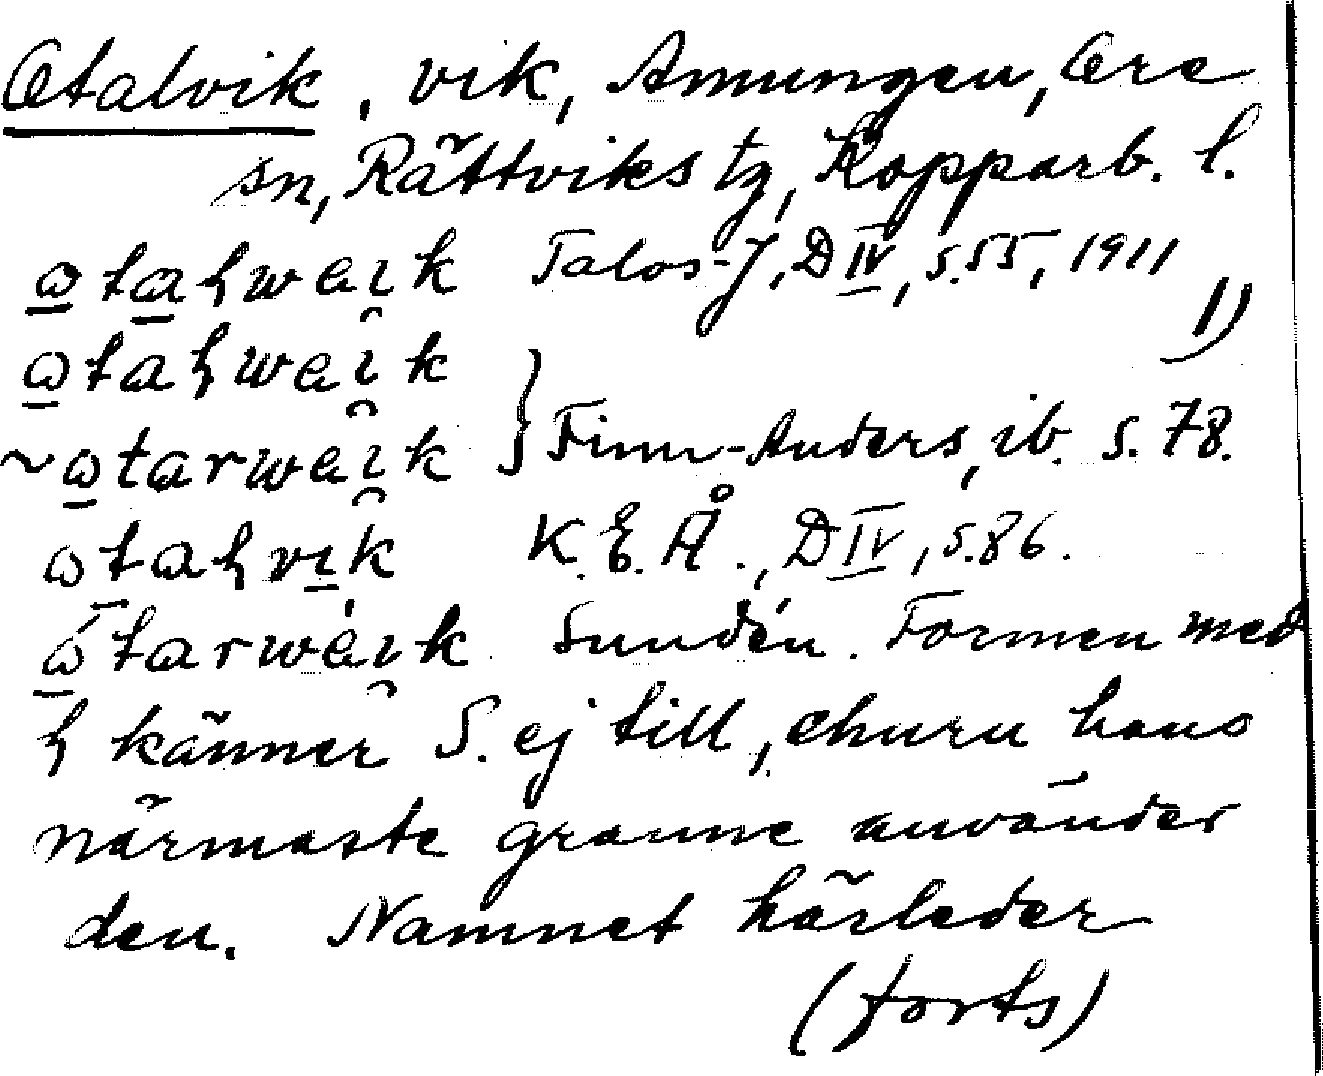 Otalvik, vik, Amungen, Ore
sn, Rättviks tg, Kopparb. l.
ɷtaɦweık Talos-J, DIV, s. 55, 1911
1)
ɷtaɦweık
~ɷtarweık } Finn-Anders, ib. s. 78.
ɷtaɦvık K. E. Å., DIV, s. 86.
ɷ́tarwèık Sundén. Formen med
ɦ känner S. ej till, churu hans
närmaste granne använder
den. Namnet härleder
(forts)